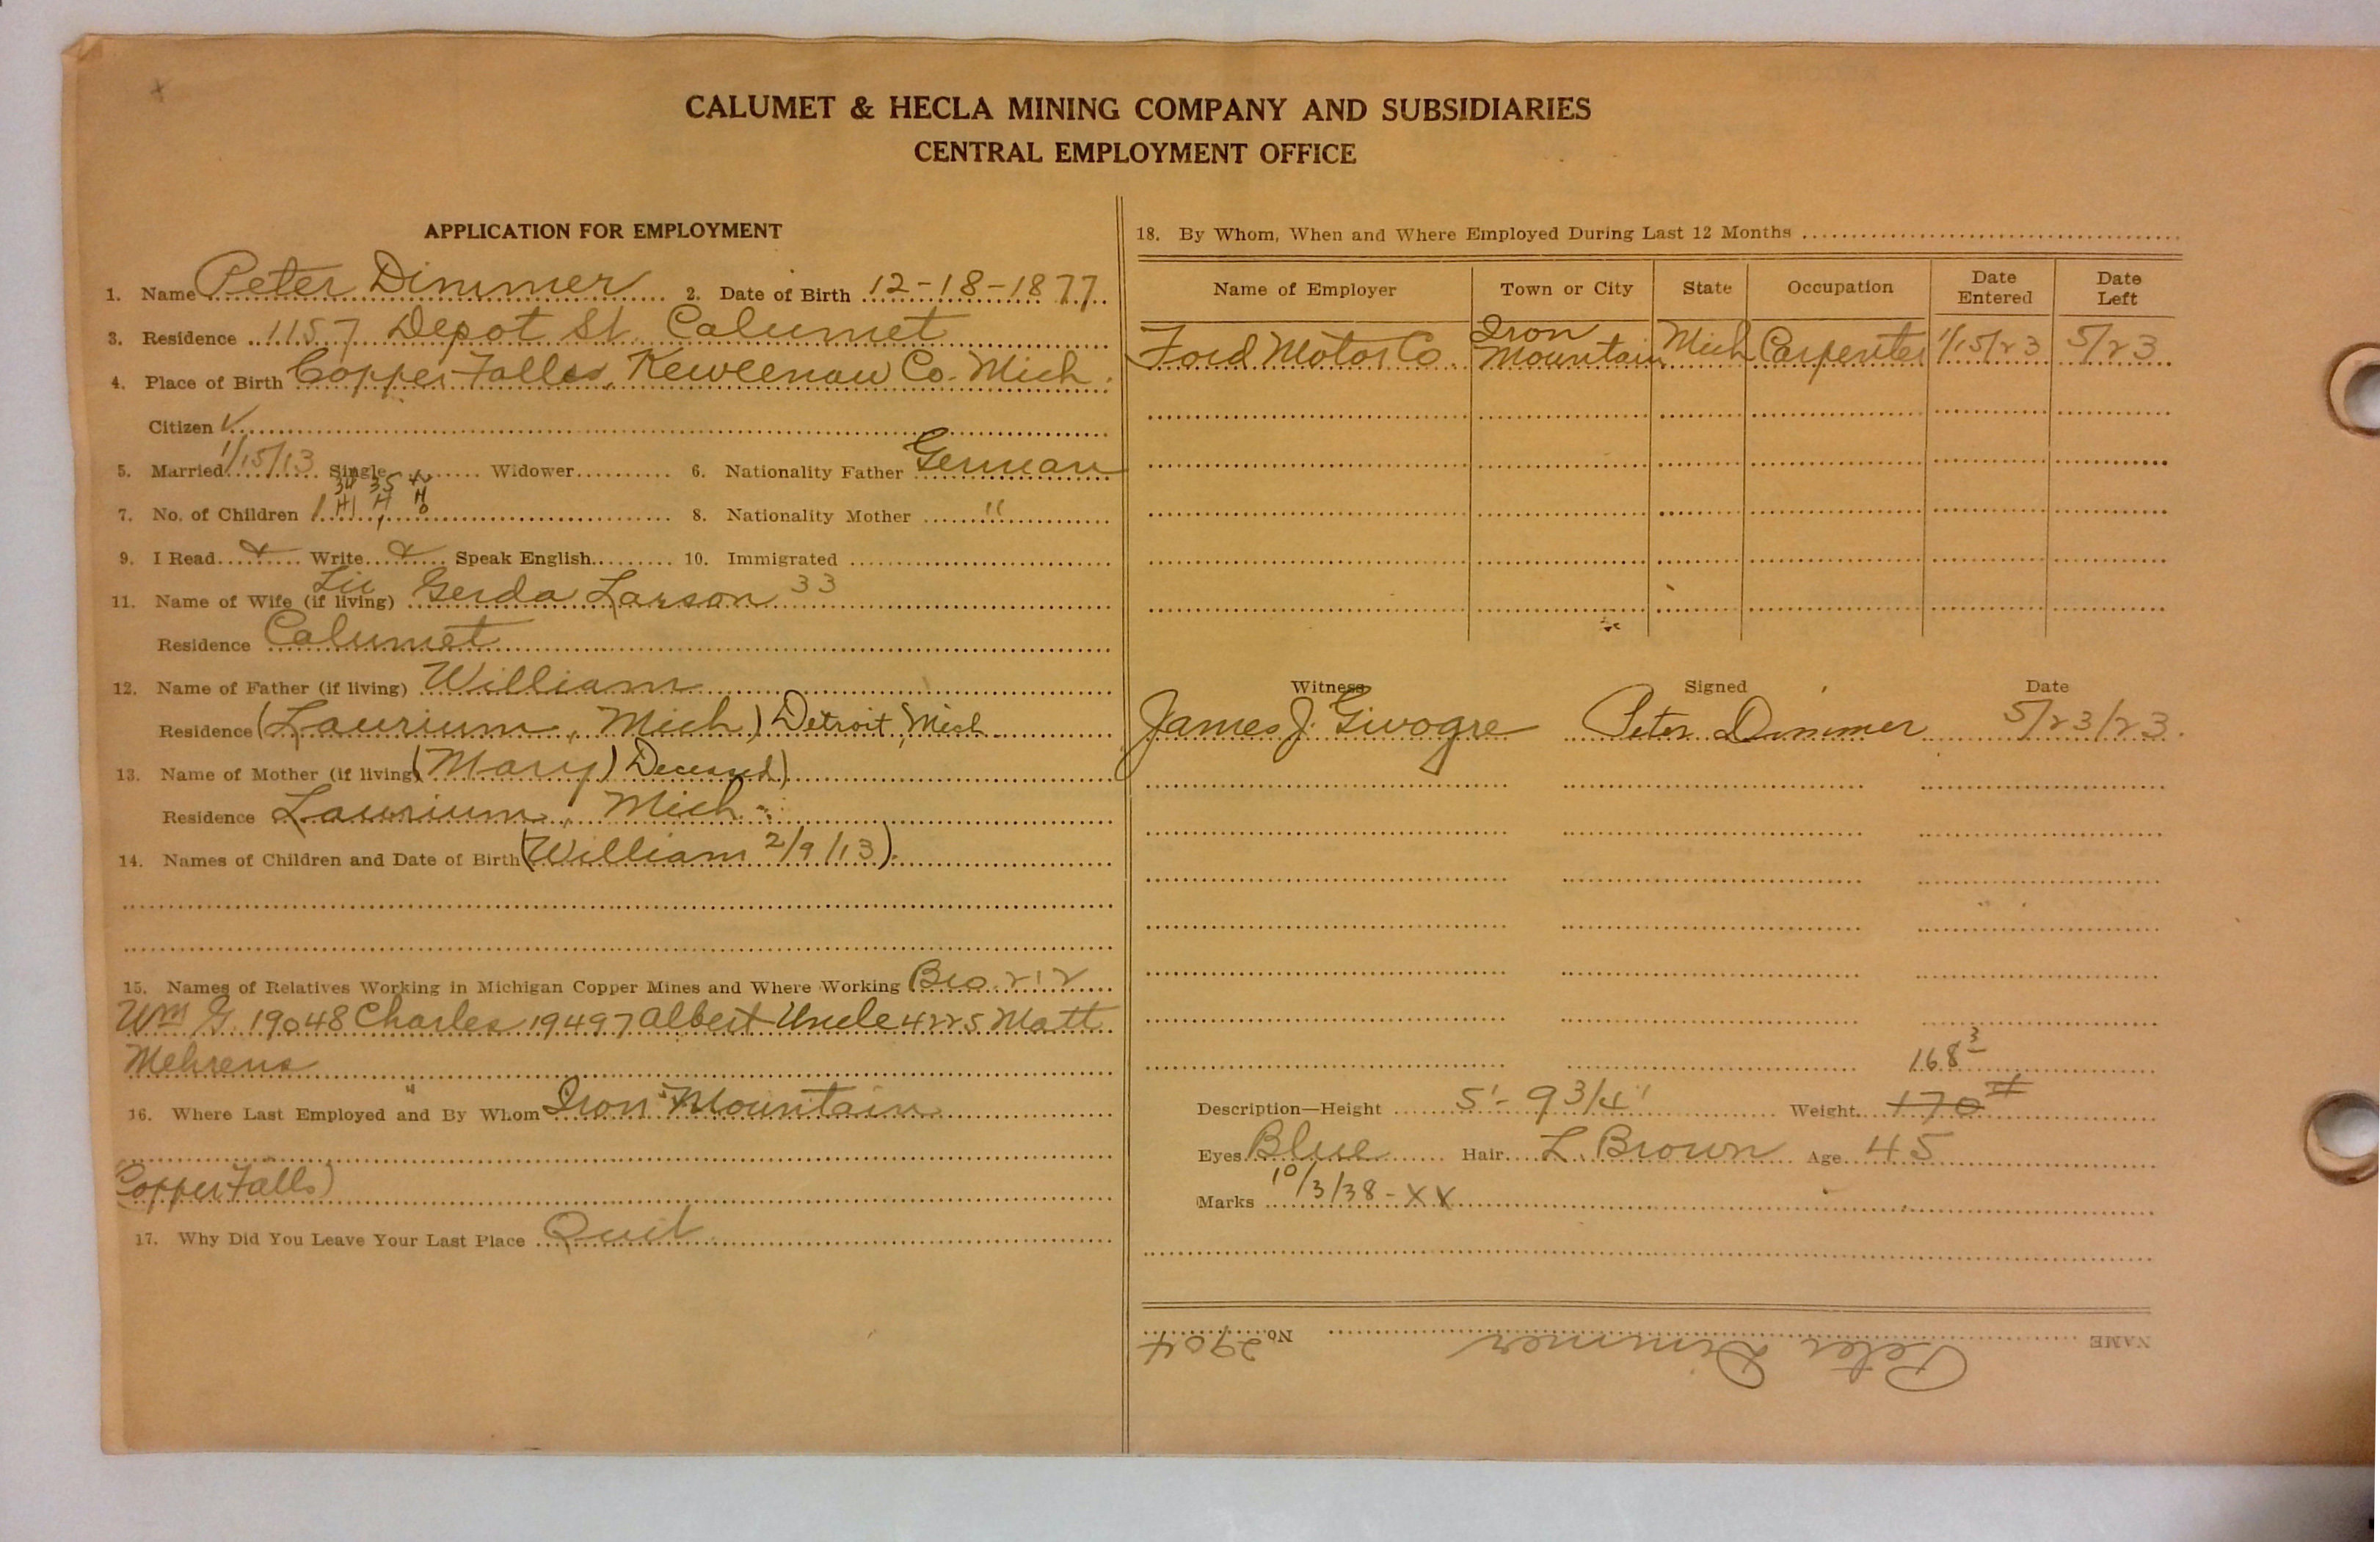 CALUMET & HECLA MINING COMPANY AND SUBSIDIARIES
CENTRAL EMPLOYMENT OFFICE
APPLICATION FOR EMPLOYMENT
1. Name Peter Dimmer 2. Date of Birth 12-18-1877
3. Residence 1157 Depot St. Calumet
4. Place of Birth Copper Falls, Keweenaw Co. Mich.
Citizen ✓
5. Married 1/15/13 Single Widower 6. Nationality Father German
34 35
7. No. of Children 1 H 8. Nationality Mother "
9. I Read Write Speak English 10. Immigrated
11. Name of Wife (if living) Gerda Larson 33
Residence Calumet
12. Name of Father (if living) William
Residence (Laurium, Mich) Detroit, Mich
13. Name of Mother (if living) (Mary) Deceased)
Residence Laurium, Mich.
14. Names of Children and Date of Birth (William 2/9/13)
15. Names of Relatives Working in Michigan Copper Mines and Where Working Bro. 212
Wm G. 19048 Charles 19497 Albert Uncle 4225 Matt
Mehrens
16. Where Last Employed and By Whom Iron Mountain
Copper Falls)
17. Why Did You Leave Your Last Place Quit
18. By Whom, When and Where Employed During Last 12 Months
Name of Employer Town or City State Occupation Date Entered Date Left
Ford Motor Co. Iron Mountain Mich Carpenter 1/15/23 5/23
Witness Signed Date
James J. Givogre Peter Dimmer 5/23/23.
168 3
Description—Height 5'- 9 3/4" Weight 170 #
Eyes Blue Hair L. Brown Age 45
Marks 10/3/38 - XX
NAME Peter Dimmer No. 2904